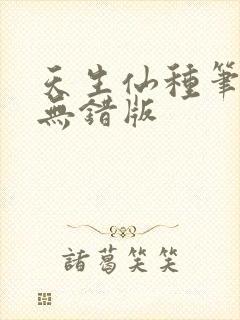 天生仙種筆
無錯版
諸葛笑笑